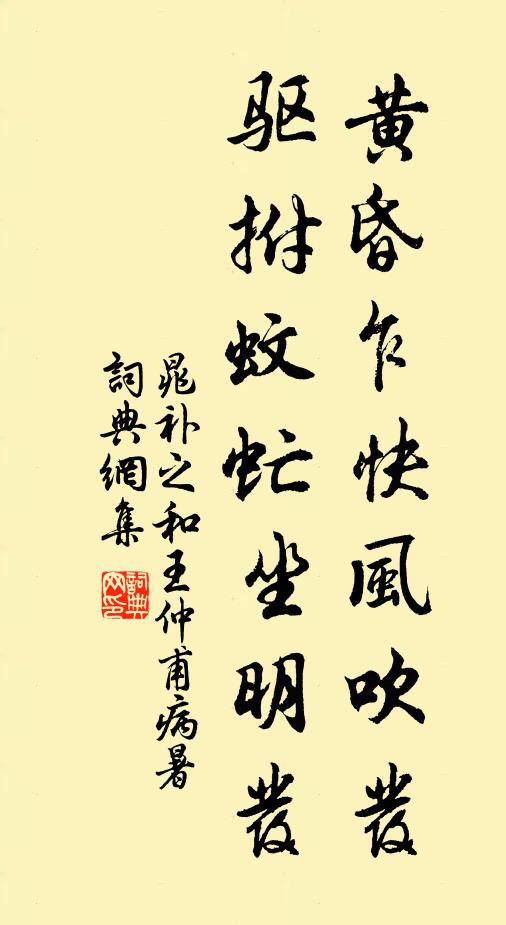 黄昏乍快風吹發
驱拊蚊虻坐明發
晁补之和王仲甫病暑
詞典網集
詞典网印